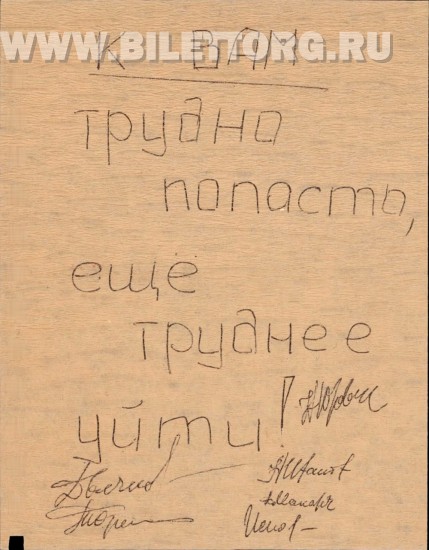 WWW.BILETTORG.RU
К ВАМ
трудно
попасть,
ещё
труднее
уйти!